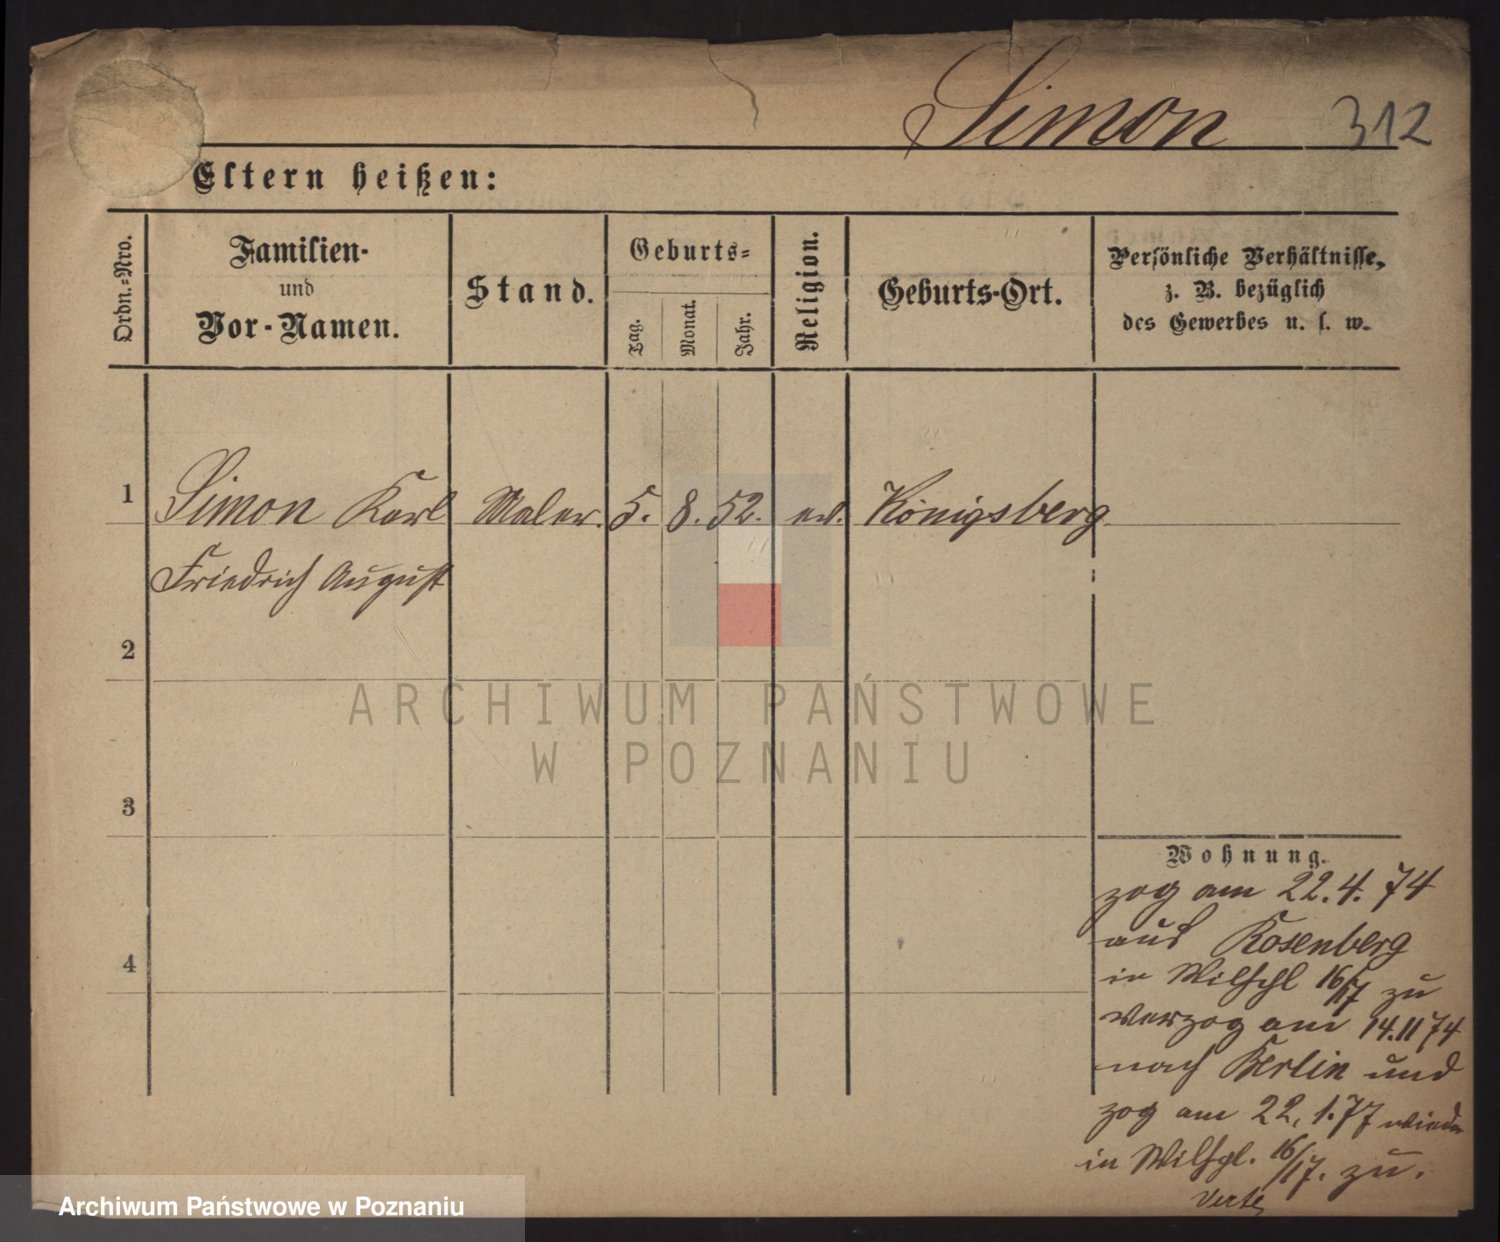 Simon 312
Eltern heißen:
Ordn.-Nro.
Familien-
und
Vor-Namen.
Stand.
Geburts-
Tag.
Monat.
Jahr.
Religion.
Geburts-Ort.
Persönliche Verhältnisse,
z. B. bezüglich
des Gewerbes u. s. w.
1 Simon Karl Maler. 5. 8. 52. ev. Königsberg
Friedrich August
2
ARCHIWUM PAŃSTWOWE
W POZNANIU
3
Wohnung.
zog am 22.4.74
aus Rosenberg
4
in Wilhpl 16/17 zu
verzog am 14.11 74
nach Berlin und
zog am 22.1.77 wieder
in Wilhpl. 16/17. zu.
verte
Archiwum Państwowe w Poznaniu